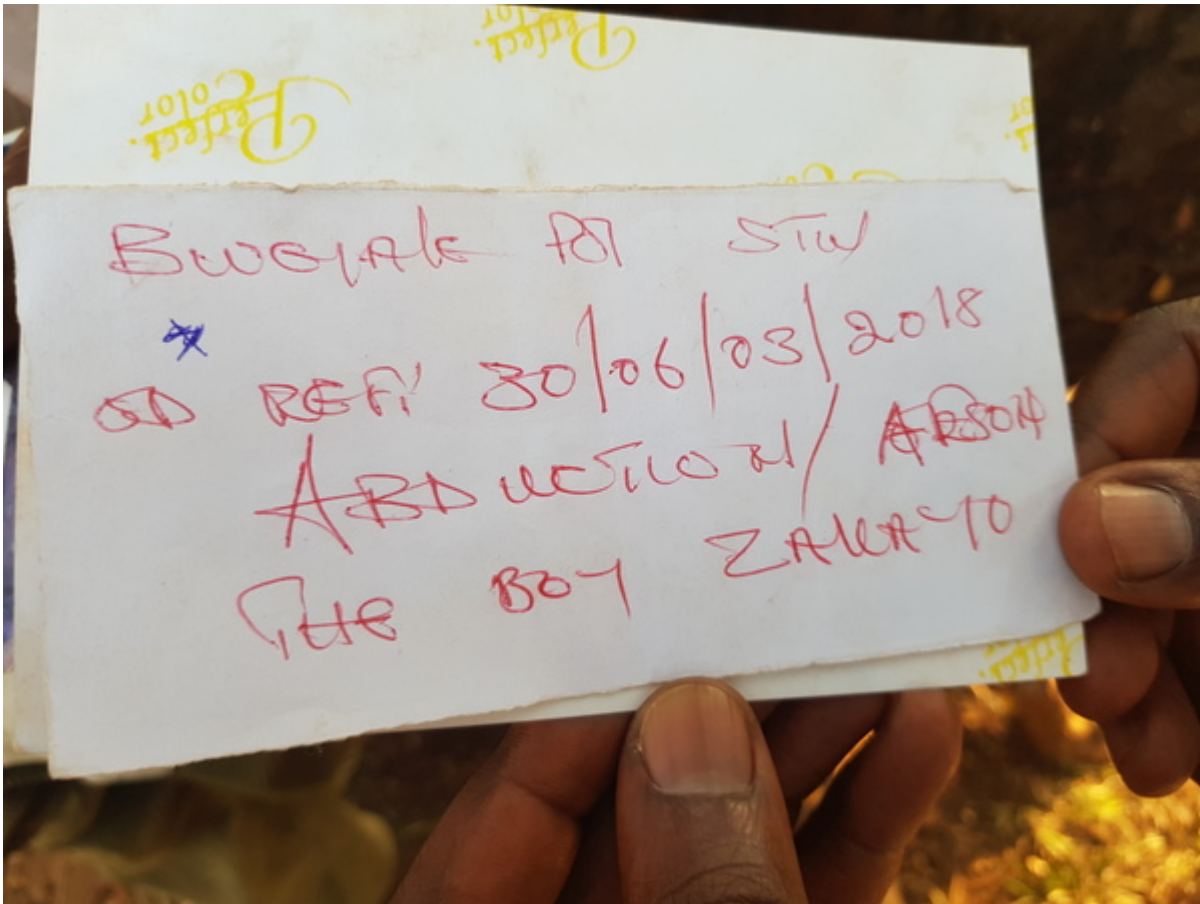 Perfect.
Color
Perfect.
Color
BWEYALE POl STN
SD REF: 30/06/03/2018
ABDUCTION/ ARSON
THE BOY ZAKAYO
Perfect.